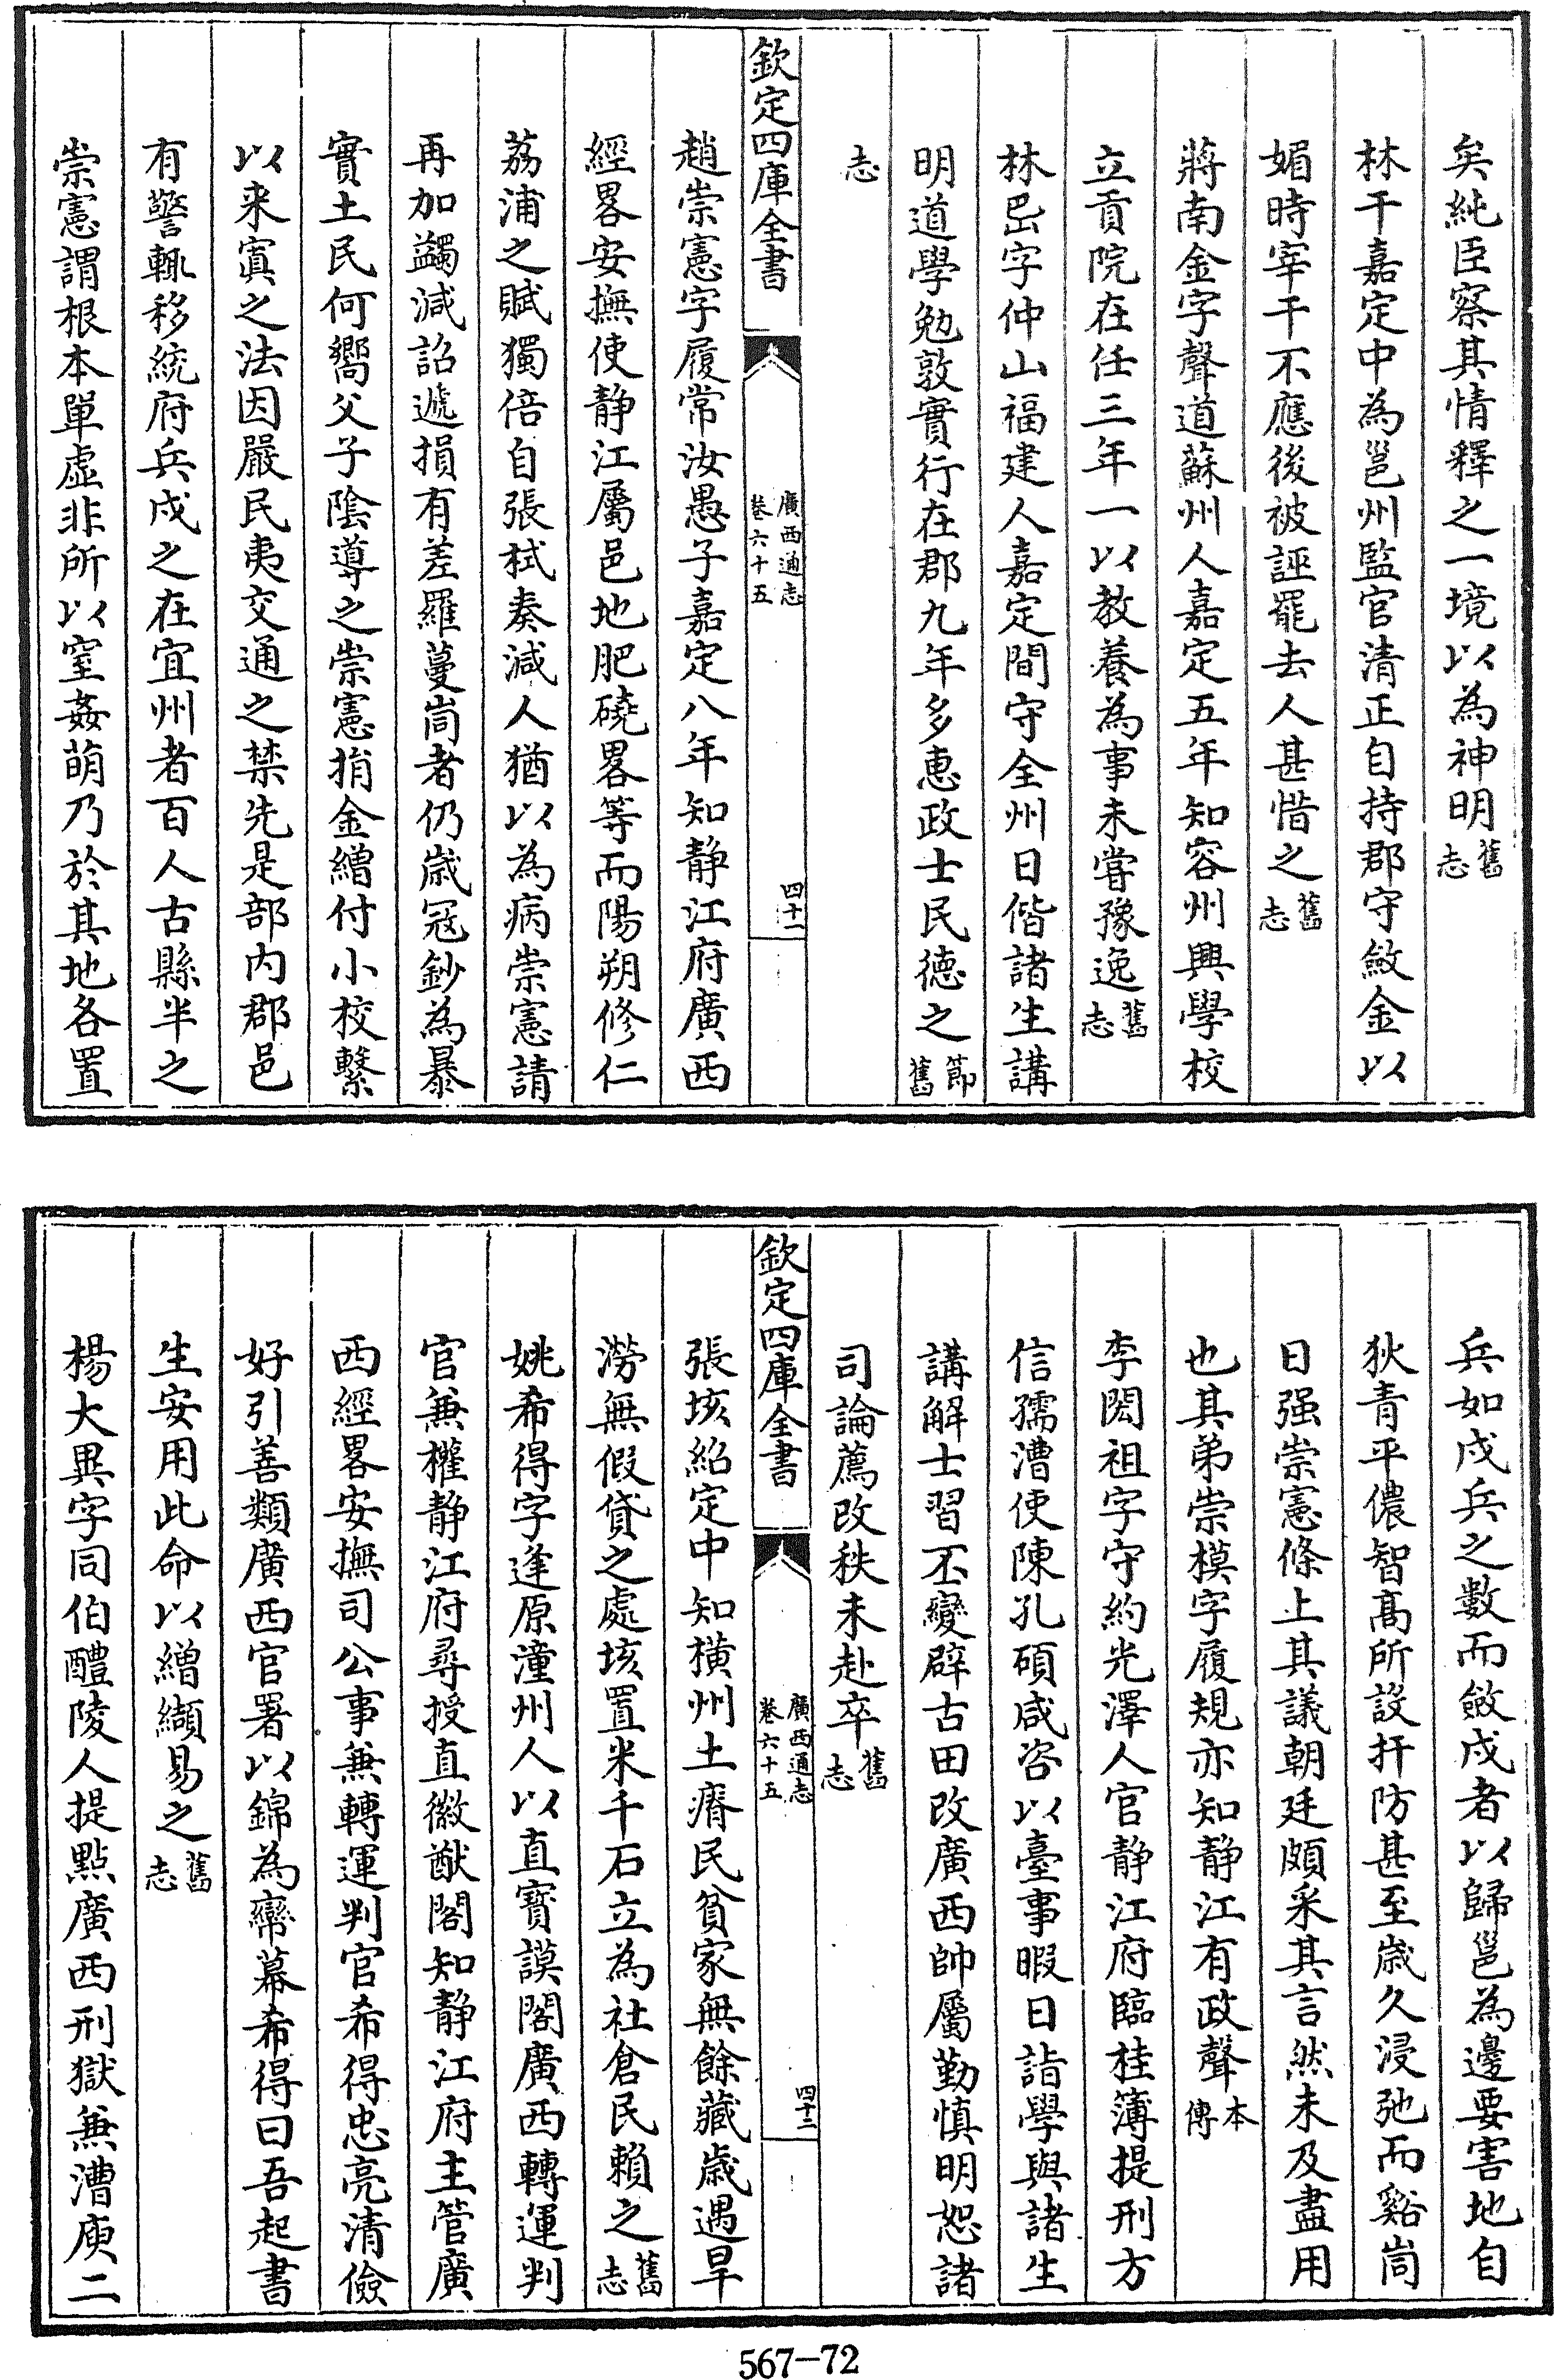 矣純臣察其情釋之一境以為神明舊志
林干嘉定中為邕州監官清正自持郡守斂金以
媚時宰干不應後被誣罷去人甚惜之舊志
蔣南金字聲道蘇州人嘉定五年知容州興學校
立貢院在任三年一以教養為事未嘗豫逸舊志
林岊字仲山福建人嘉定間守全州日偕諸生講
明道學勉敦實行在郡九年多惠政士民德之節舊
志
欽定四庫全書
廣西通志
卷六十五
四十一
趙崇憲字履常汝愚子嘉定八年知静江府廣西
經畧安撫使静江屬邑地肥磽畧等而陽朔修仁
荔浦之賦獨倍自張栻奏減人猶以為病崇憲請
再加蠲減詔遞損有差羅蔓峝者仍歳冦鈔為暴
實土民何嚮父子陰導之崇憲捐金繒付小校繫
以来寘之法因嚴民夷交通之禁先是部内郡邑
有警輒移統府兵戍之在宜州者百人古縣半之
崇憲謂根本單虛非所以窒姦萌乃於其地各置
兵如戍兵之數而斂戍者以歸邕為邊要害地自
狄青平儂智髙所設扞防甚至歳久浸弛而谿峝
日强崇憲條上其議朝廷頗采其言然未及盡用
也其弟崇模字履規亦知静江有政聲本傳
李閎祖字守約光澤人官静江府臨桂簿提刑方
信孺漕使陳孔碩咸咨以臺事暇日詣學與諸生
講解士習丕變辟古田改廣西帥屬勤慎明恕諸
司論薦改秩未赴卒舊志
欽定四庫全書
廣西通志
卷六十五
四十二
張垓紹定中知横州土瘠民貧家無餘藏歳遇旱
澇無假貸之處垓置米千石立為社倉民賴之舊志
姚希得字逢原潼州人以直寳謨閣廣西轉運判
官兼權静江府尋授直徽猷閣知静江府主管廣
西經畧安撫司公事兼轉運判官希得忠亮清儉
好引善類廣西官署以錦為帟幕希得曰吾起書
生安用此命以繒纈易之舊志
楊大異字同伯醴陵人提點廣西刑獄兼漕庾二
567-72